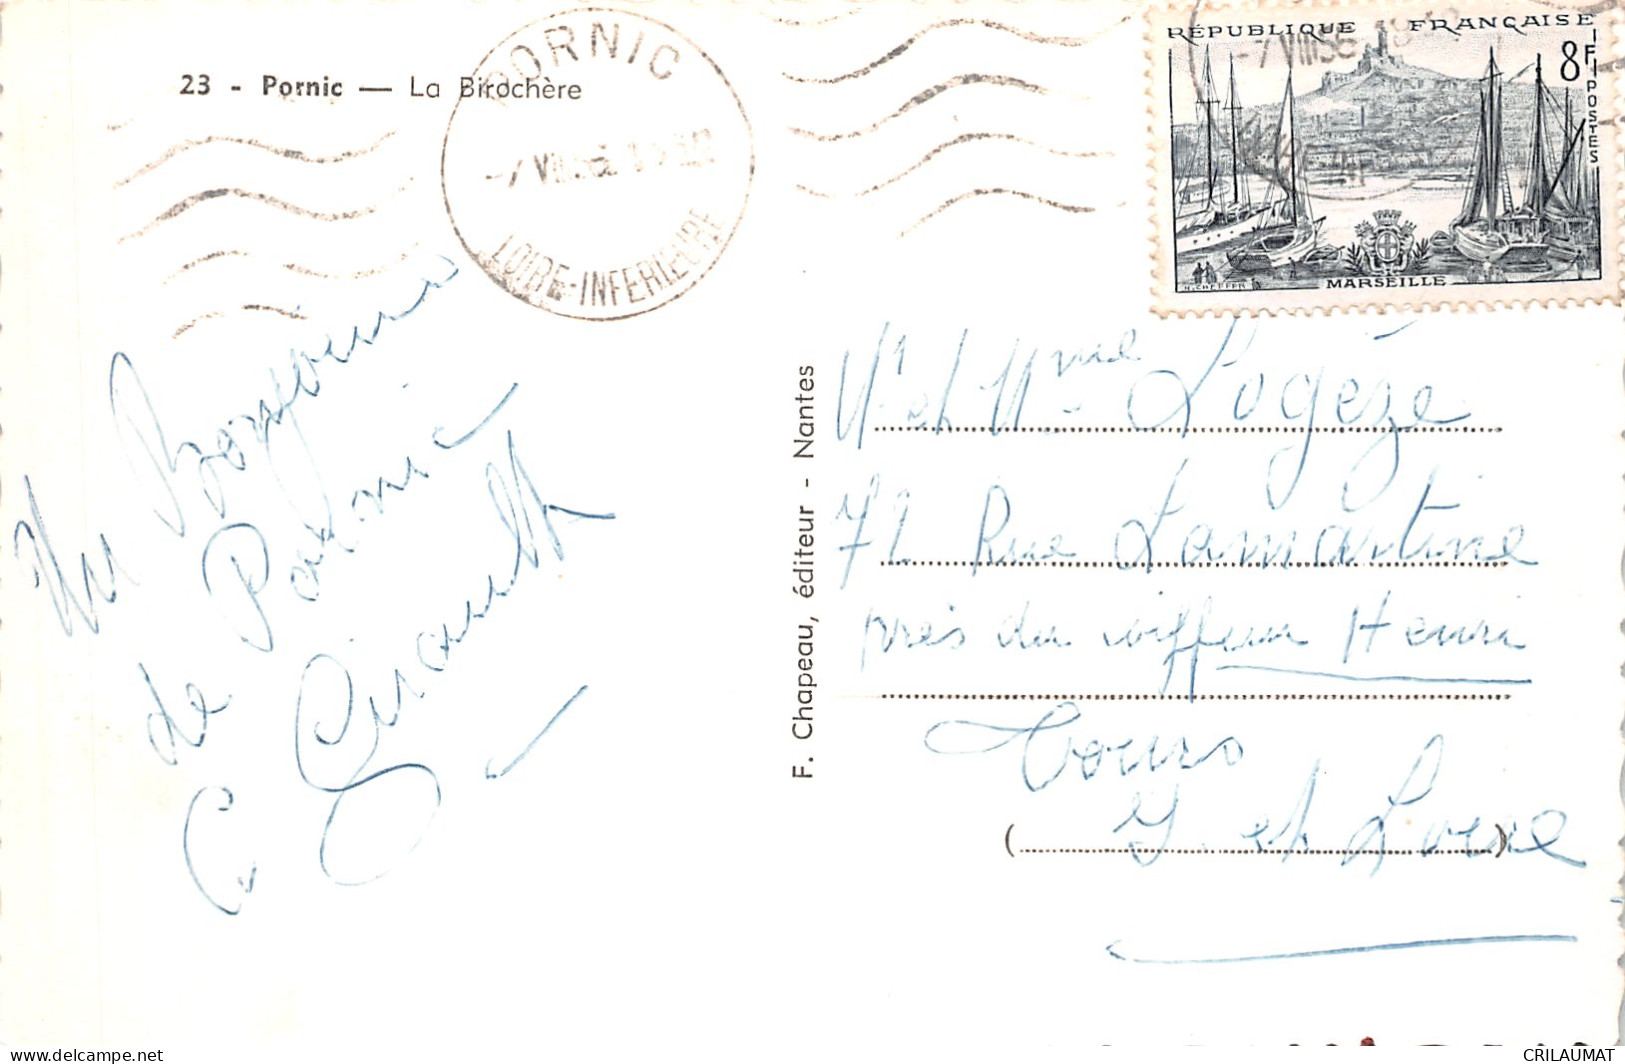 23 - Pornic — La Birochère
PORNIC
LOIRE-INFERIEURE
RÉPUBLIQUE FRANÇAISE
8F
POSTES
MARSEILLE
Un Bonjour
de Pornic
C. Girault
F. Chapeau, éditeur - Nantes
Mr et Mme Logéze
71 Rue Lamartine
près du coiffeur Henri
Tours
I. et Loire
CRILAUMAT